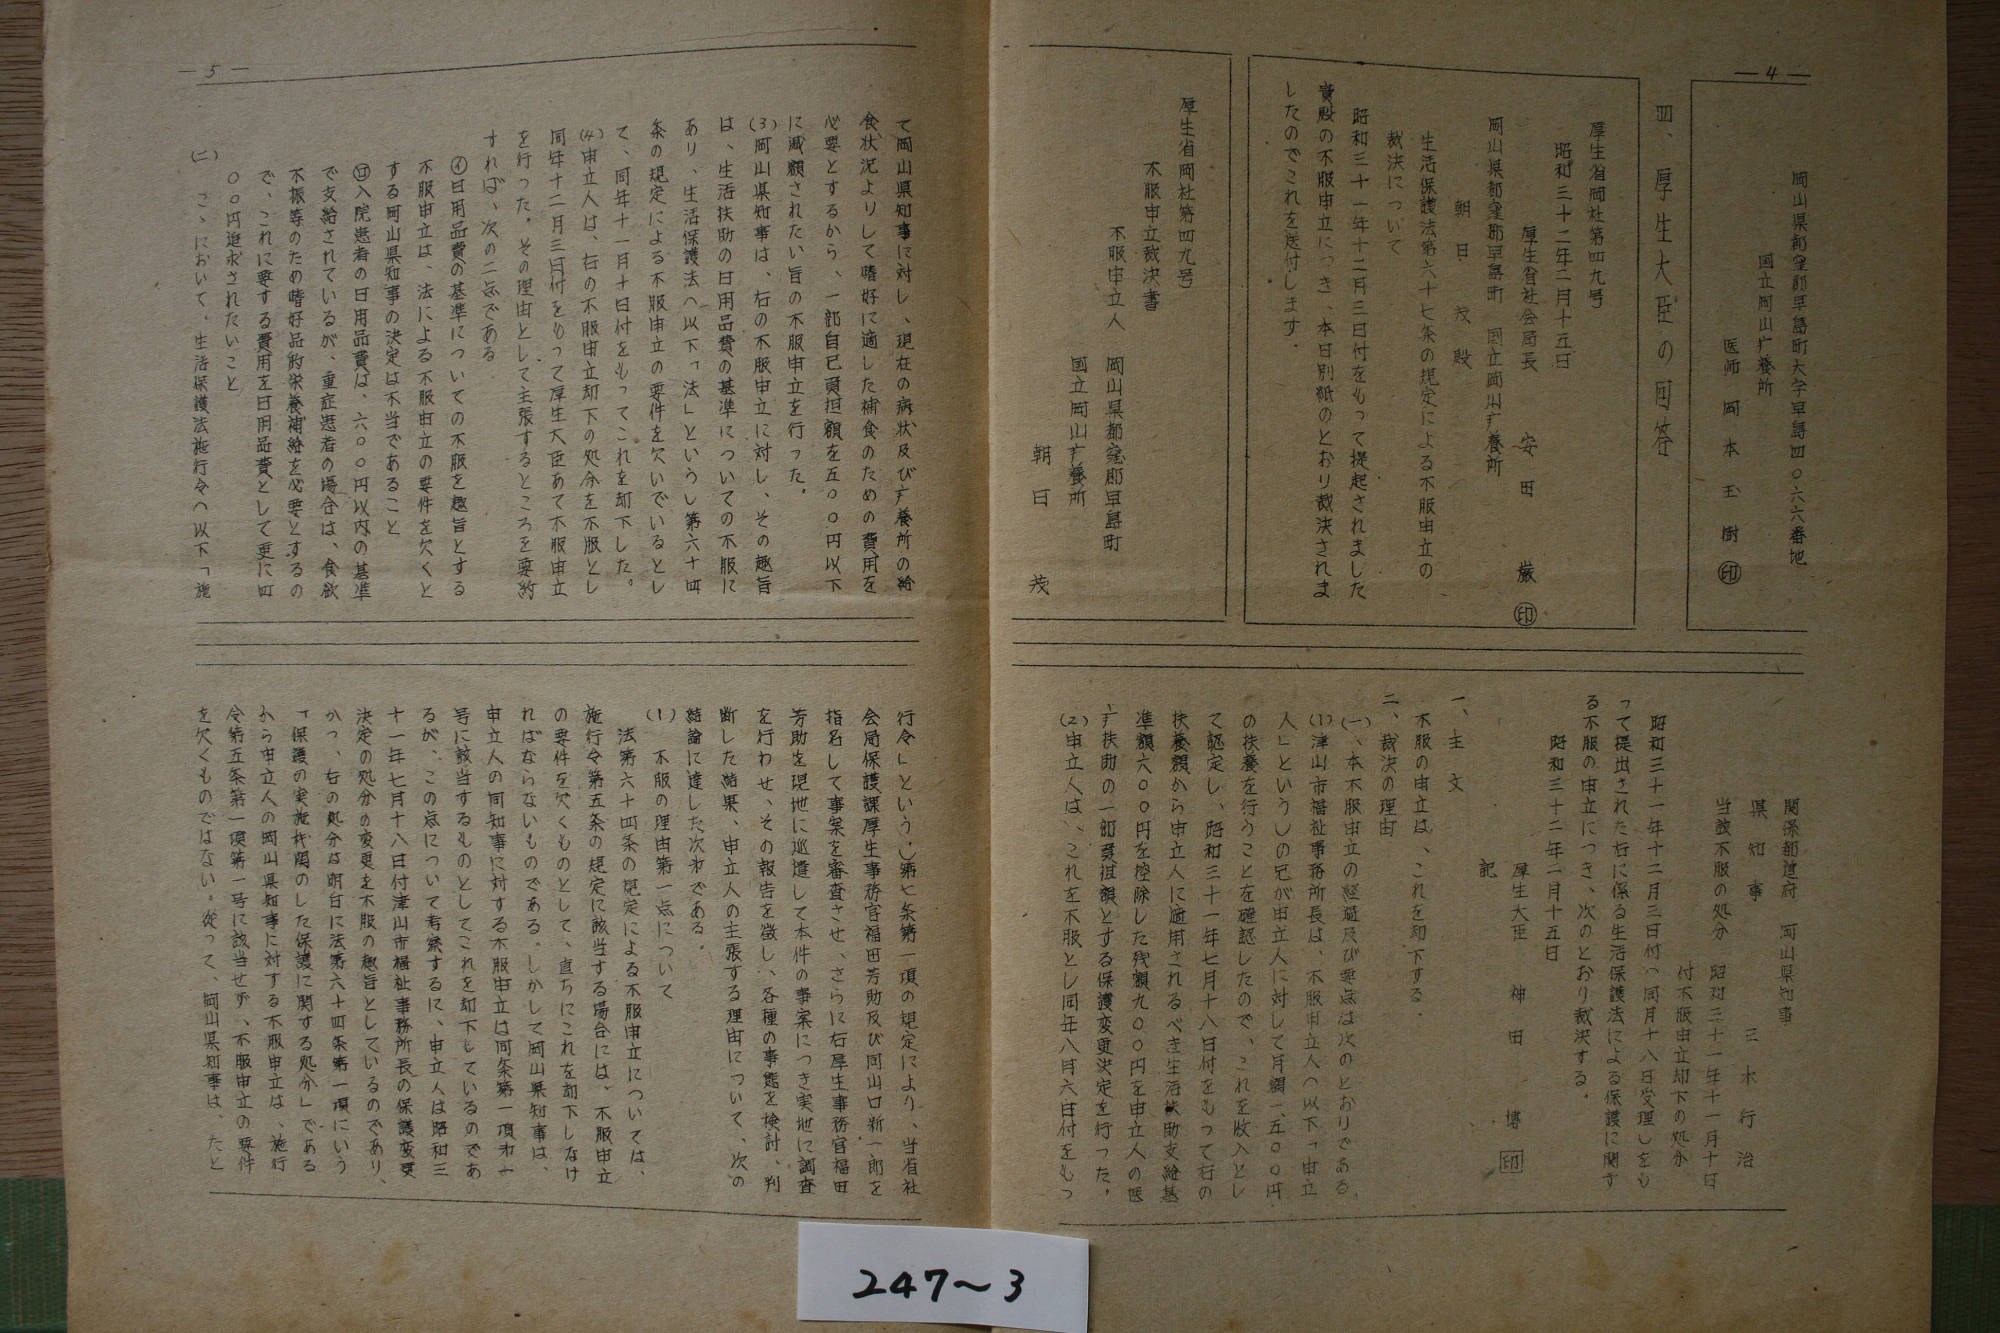 — 4 —
岡山県都窪郡早島町大字早島四〇六六番地
国立岡山疗養所
医師 岡本玉樹 ㊞
四、厚生大臣の回答
厚生省岡社第四九号
昭和三十二年二月十五日
厚生省社会局長 安田巌 ㊞
岡山県都窪郡早島町 国立岡山疗養所
朝日茂殿
生活保護法第六十七条の規定による不服申立の
裁決について
昭和三十一年十二月三日付をもって提起されました
貴殿の不服申立につき、本日別紙のとおり裁決されま
したのでこれを送付します.
厚生省岡社第四九号
不服申立裁決書
不服申立人 岡山県都窪郡早島町
国立岡山疗養所
朝日茂
関係都道府 岡山県知事
県知事 三木行治
当該不服の処分 昭和三十一年十一月十日
付不服申立却下の処分
昭和三十一年十二月三日付(同月十八日受理)をも
って提出された右に係る生活保護法による保護に関す
る不服の申立につき、次のとおり裁決する.
昭和三十二年二月十五日
厚生大臣 神田博 印
記
一、主文
不服の申立は、これを却下する.
二、裁決の理由
(一)、本不服申立の経過及び要点は次のとおりである
(1)津山市福祉事務所長は、不服申立人(以下「申立
人」という)の兄が申立人に対して月額一、五〇〇円
の扶養を行うことを確認したので、これを収入とし
て認定し、昭和三十一年七月十八日付をもって右の
扶養額から申立人に適用されるべき生活扶助支給基
準額六〇〇円を控除した残額九〇〇円を申立人の医
疗扶助の一部負担額とする保護変更決定を行った.
(2)申立人は、これを不服とし同年八月六日付をもっ
— 5 —
て岡山県知事に対し、現在の病状及び疗養所の給
食状況よりして嗜好に適した補食のための費用を
必要とするから、一部自己負担額を五〇〇円以下
に減額されたい旨の不服申立を行った.
(3)岡山県知事は、右の不服申立に対し、その趣旨
は、生活扶助の日用品費の基準についての不服に
あり、生活保護法(以下「法」という)第六十四
条の規定による不服申立の要件を欠いでいるとし
て、同年十一月十日付をもってこれを却下した。
(4)申立人は、右の不服申立却下の処分を不服とし
同年十二月三日付をもって厚生大臣あて不服申立
を行った.その理由として主張するところを要約
すれば、次の二点である
㋑日用品費の基準についての不服を趣旨とする
不服申立は、法による不服申立の要件を欠くと
する岡山県知事の決定は不当であること
㋺入院患者の日用品費は、六〇〇円以内の基準
で支給されているが、重症患者の場合は、食欲
不振等のため嗜好品的栄養補給を必要とするの
で、これに要する費用を日用品費として更に四
〇〇円追求されたいこと
(二) こゝにおいて、生活保護法施行令(以下「施
行令」という.)第七条第一項の規定により、当省社
会局保護課厚生事務官福田芳助及び同山口新一郎を
指名して事案を審査させ、さらに右厚生事務官福田
芳助を現地に巡遣して本件の事案につき実地に調査
を行わせ、その報告を徴し、各種の事態を検討、判
断した結果、申立人の主張する理由について、次の
結論に達した次才である.
(1) 不服の理由第一点について
法第六十四条の規定による不服申立については、
施行令第五条の規定に該当する場合には、不服申立
の要件を欠くものとして、直ちにこれを却下しなけ
ればならないものである.しかして岡山県知事は、
申立人の同知事に対する不服申立は同条第一項才一
号に該当するものとしてこれを却下しているのであ
るが、この点について考察するに、申立人は昭和三
十一年七月十八日付津山市福祉事務所長の保護変更
決定の処分の変更を不服の趣旨としているのであり、
かつ、右の処分は明白に法第六十四条第一項にいう
「保護の実施機関のした保護に関する処分」である
から申立人の岡山県知事に対する不服申立は、施行
令第五条第一項第一号に該当せず、不服申立の要件
を欠くものではない.従って、岡山県知事は、たと
247~3